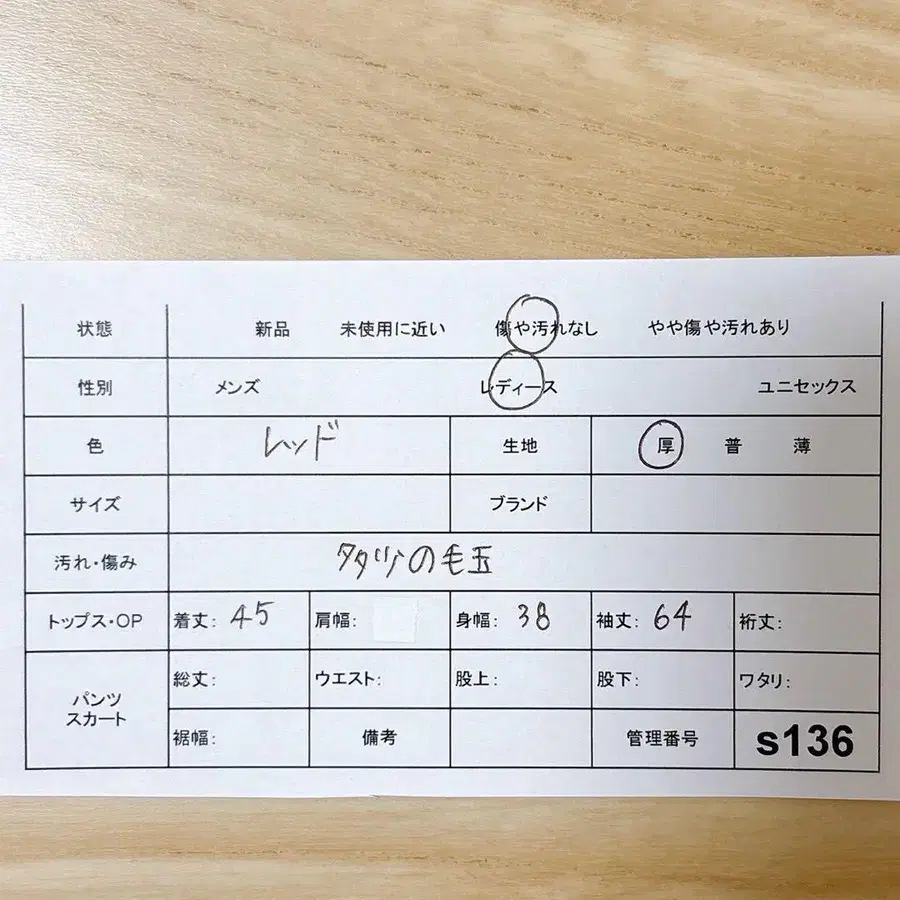 状態 新品 未使用に近い 傷や汚れなし やや傷や汚れあり
性別 メンズ レディース ユニセックス
色 レッド 生地 厚 普 薄
サイズ ブランド
汚れ・傷み 多少の毛玉
トップス・OP 着丈: 45 肩幅: 身幅: 38 袖丈: 64 裄丈:
パンツ
スカート
総丈: ウエスト: 股上: 股下: ワタリ:
裾幅: 備考 管理番号 s136